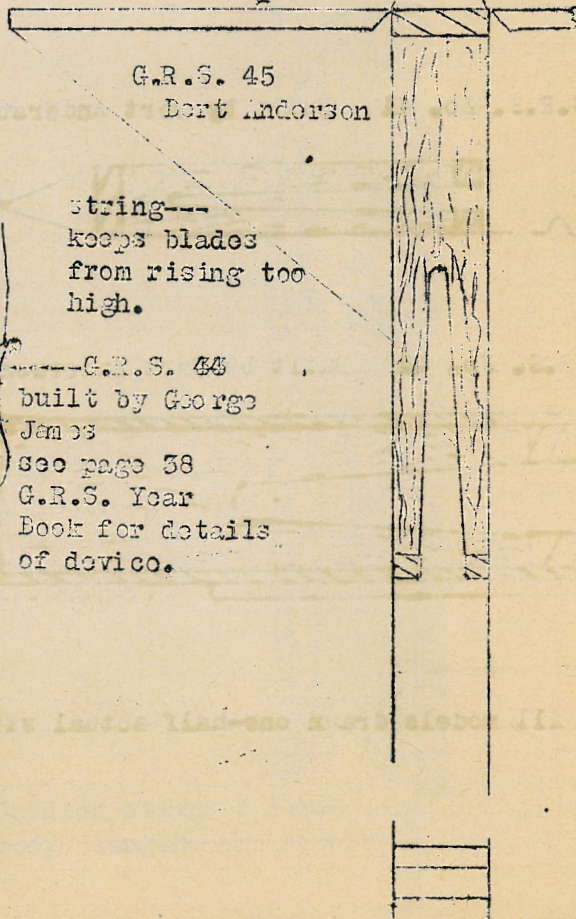 G.R.S. 45
Bert Anderson
string---
keeps blades
from rising too
high.
-----G.R.S. 44
built by George
James
see page 38
G.R.S. Year
Book for details
of device.
All models drawn one-half actual